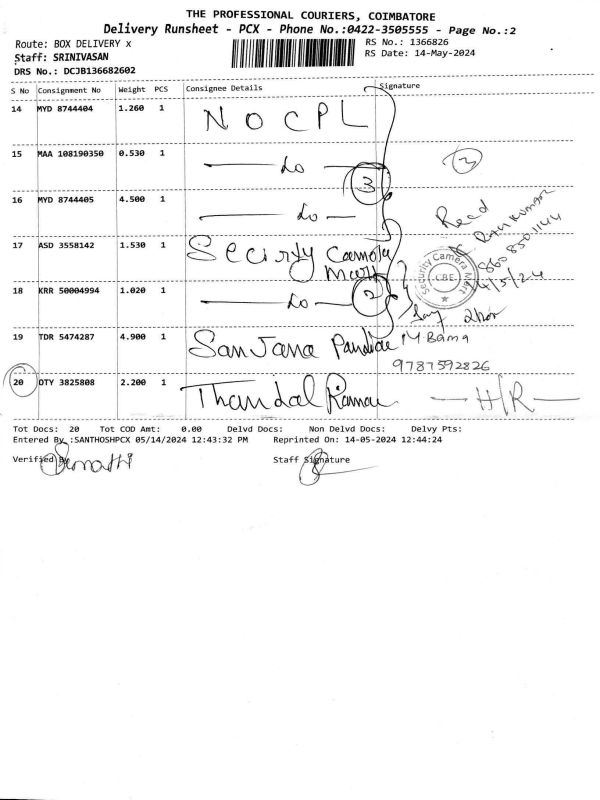 THE PROFESSIONAL COURIERS, COIMBATORE
Delivery Runsheet - PCX - Phone No.:0422-3505555 - Page No.:2
Route: BOX DELIVERY x
RS No.: 1366826
Staff: SRINIVASAN
RS Date: 14-May-2024
DRS No.: DCJB136682602
S No Consignment No Weight PCS Consignee Details Signature
14 MYD 8744404 1.260 1 NOCPL
15 MAA 108190350 0.530 1 Do
3
3
16 MYD 8744405 4.500 1 Do
Recd
17 ASD 3558142 1.530 1 Secirty Camera
Mart
Security Camera Mart
CBE
18 KRR 50004994 1.020 1 Do
2
19 TDR 5474287 4.900 1 SanJana
Bama
9787592826
20 OTY 3825808 2.200 1 H/R
Tot Docs: 20 Tot COD Amt: 0.00 Delvd Docs: Non Delvd Docs: Delvy Pts:
Entered By :SANTHOSHPCX 05/14/2024 12:43:32 PM Reprinted On: 14-05-2024 12:44:24
Verified By
Staff Signature